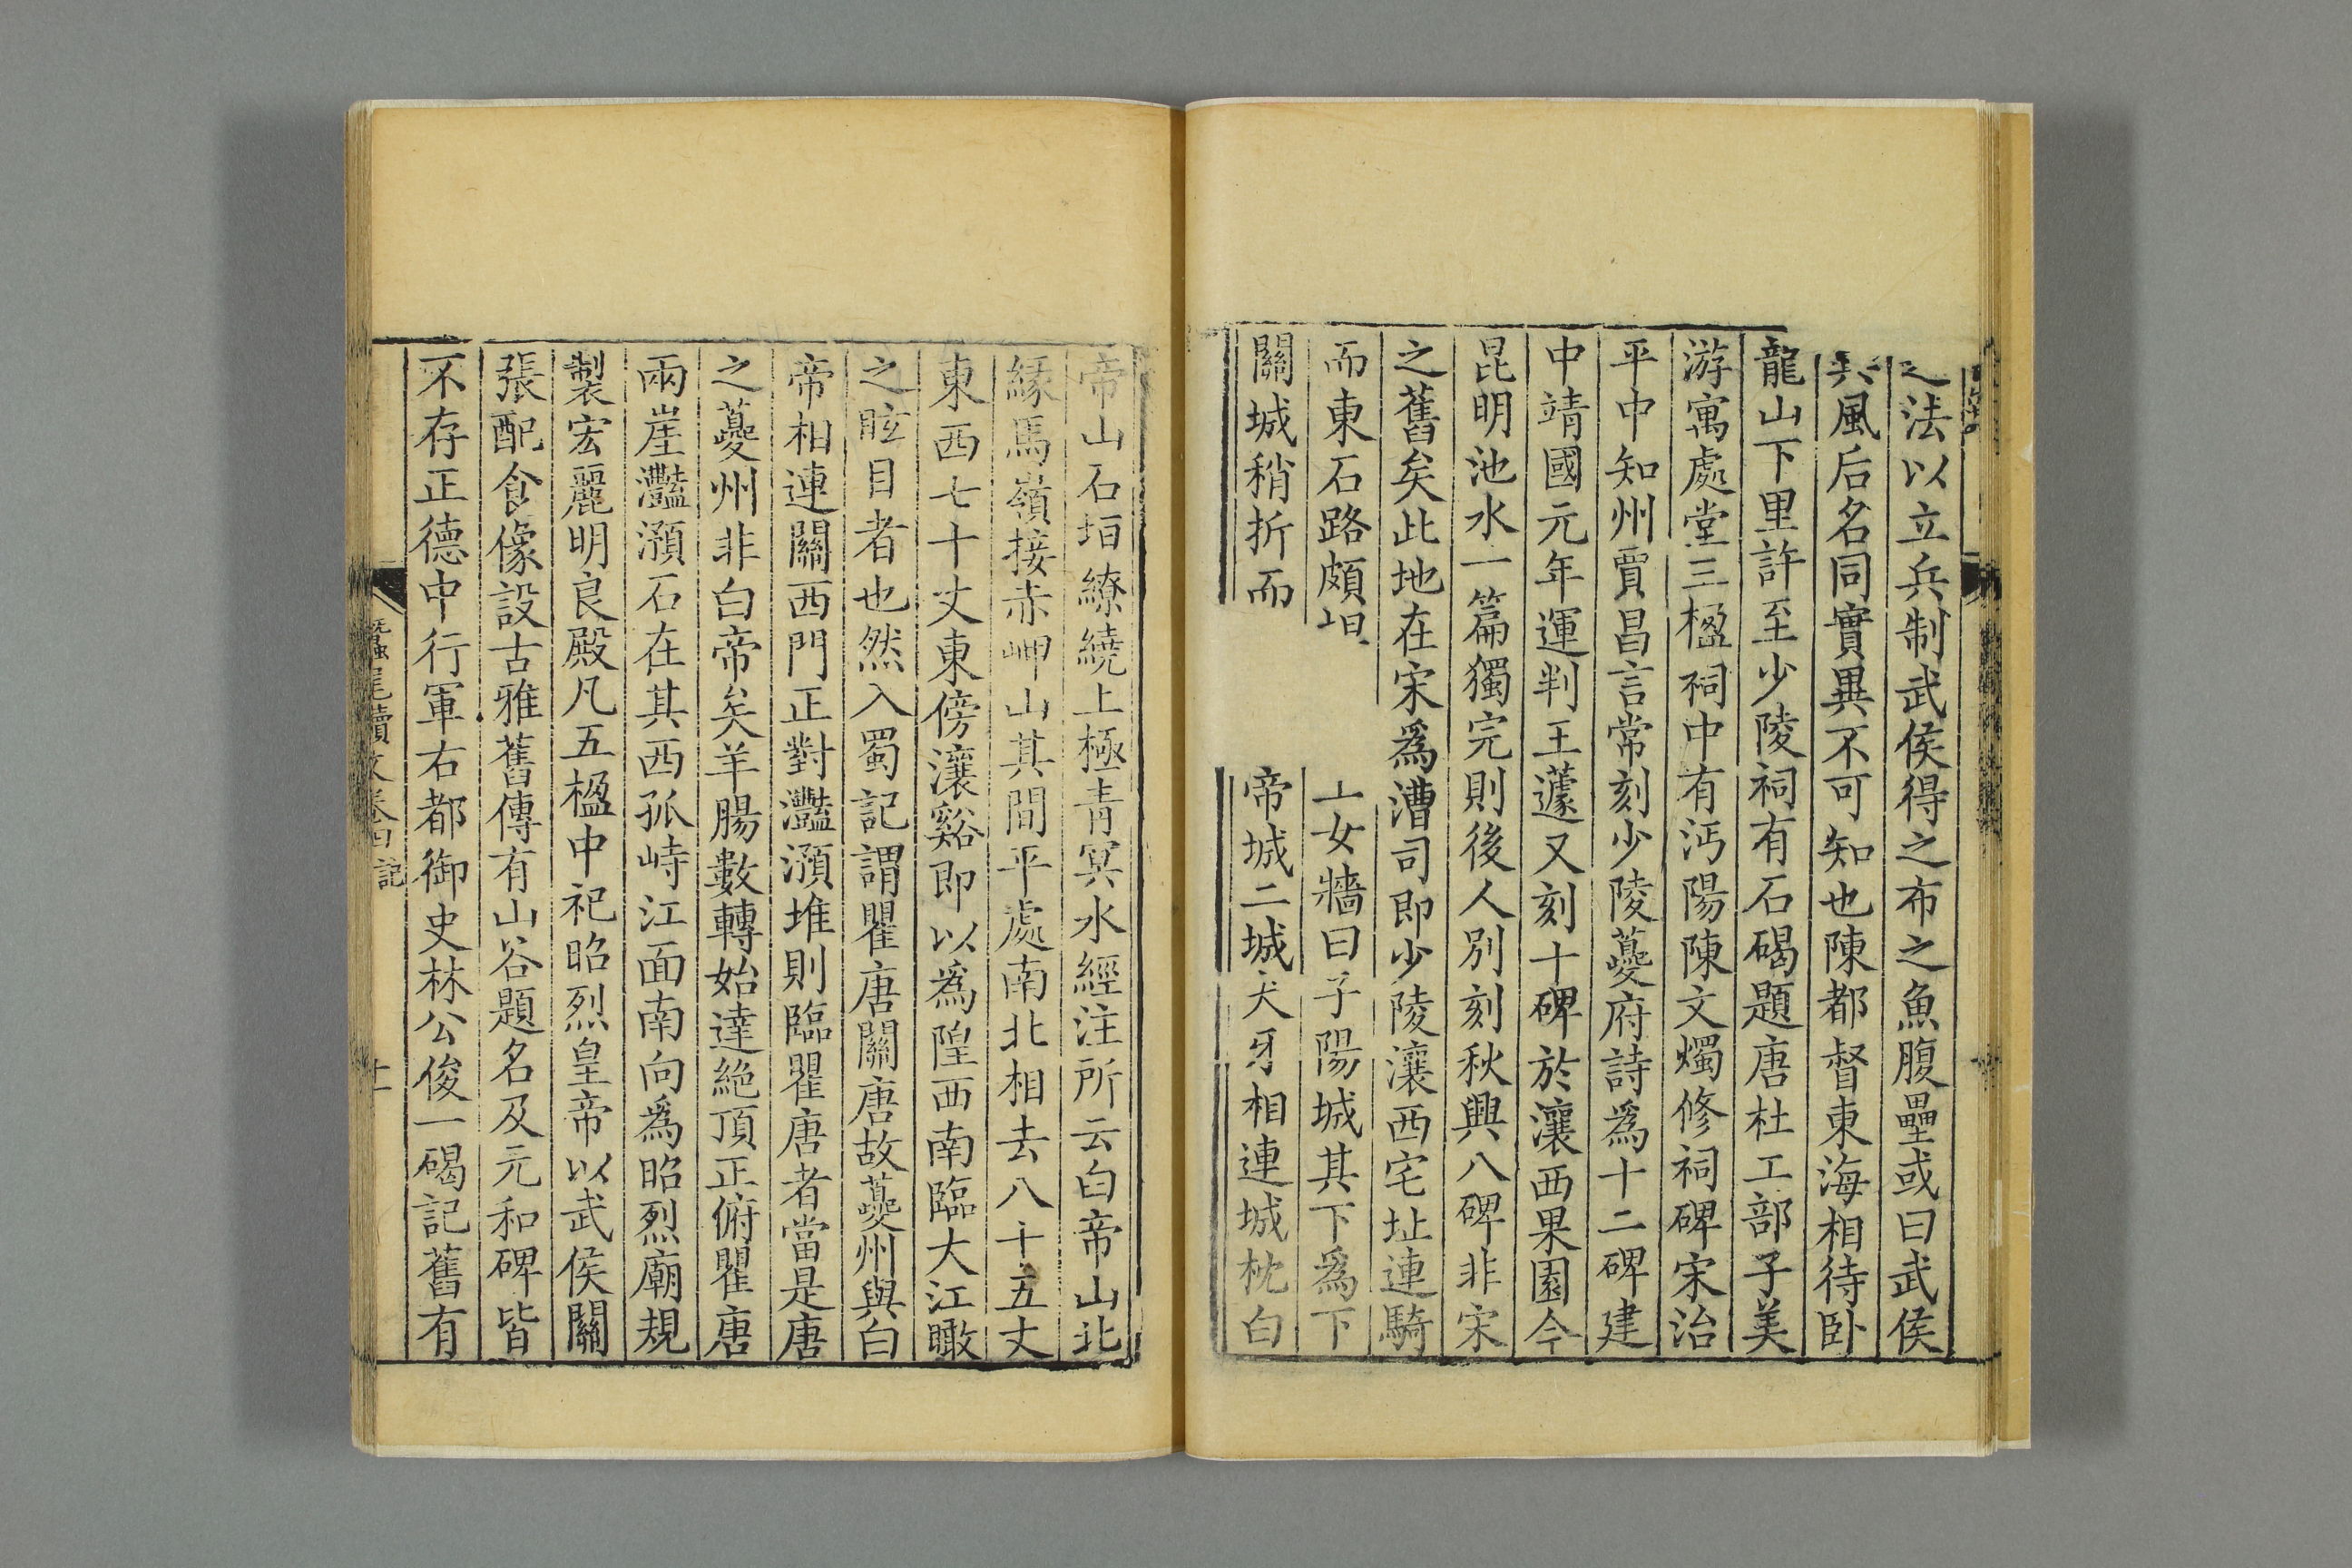 之法以立兵制武侯得之布之魚腹壘或曰武侯
與風后名同實異不可知也陳都督東海相待卧
龍山下里許至少陵祠有石碣題唐杜工部子美
游寓處堂三楹祠中有沔陽陳文燭修祠碑宋治
平中知州賈昌言常刻少陵夔府詩爲十二碑建
中靖國元年運判王蘧又刻十碑於瀼西果園今
昆明池水一篇獨完則後人別刻秋興八碑非宋
之舊矣此地在宋爲漕司即少陵瀼西宅址連騎
而東石路頗坦 女牆曰子陽城其下爲下
關城稍折而 帝城二城犬牙相連城枕白
帝山石垣繚繞上極青冥水經注所云白帝山北
緣馬嶺接赤岬山其間平處南北相去八十五丈
東西七十丈東傍瀼谿即以爲隍西南臨大江瞰
之眩目者也然入蜀記謂瞿唐關唐故夔州與白
帝相連關西門正對灩澦堆則臨瞿唐者當是唐
之夔州非白帝矣羊腸數轉始達絶頂正俯瞿唐
兩崖灩澦石在其西孤峙江面南向爲昭烈廟規
製宏麗明良殿凡五楹中祀昭烈皇帝以武侯關
張配食像設古雅舊傳有山谷題名及元和碑皆
不存正德中行軍右都御史林公俊一碣記舊有
蠶尾續文卷四 記 十一